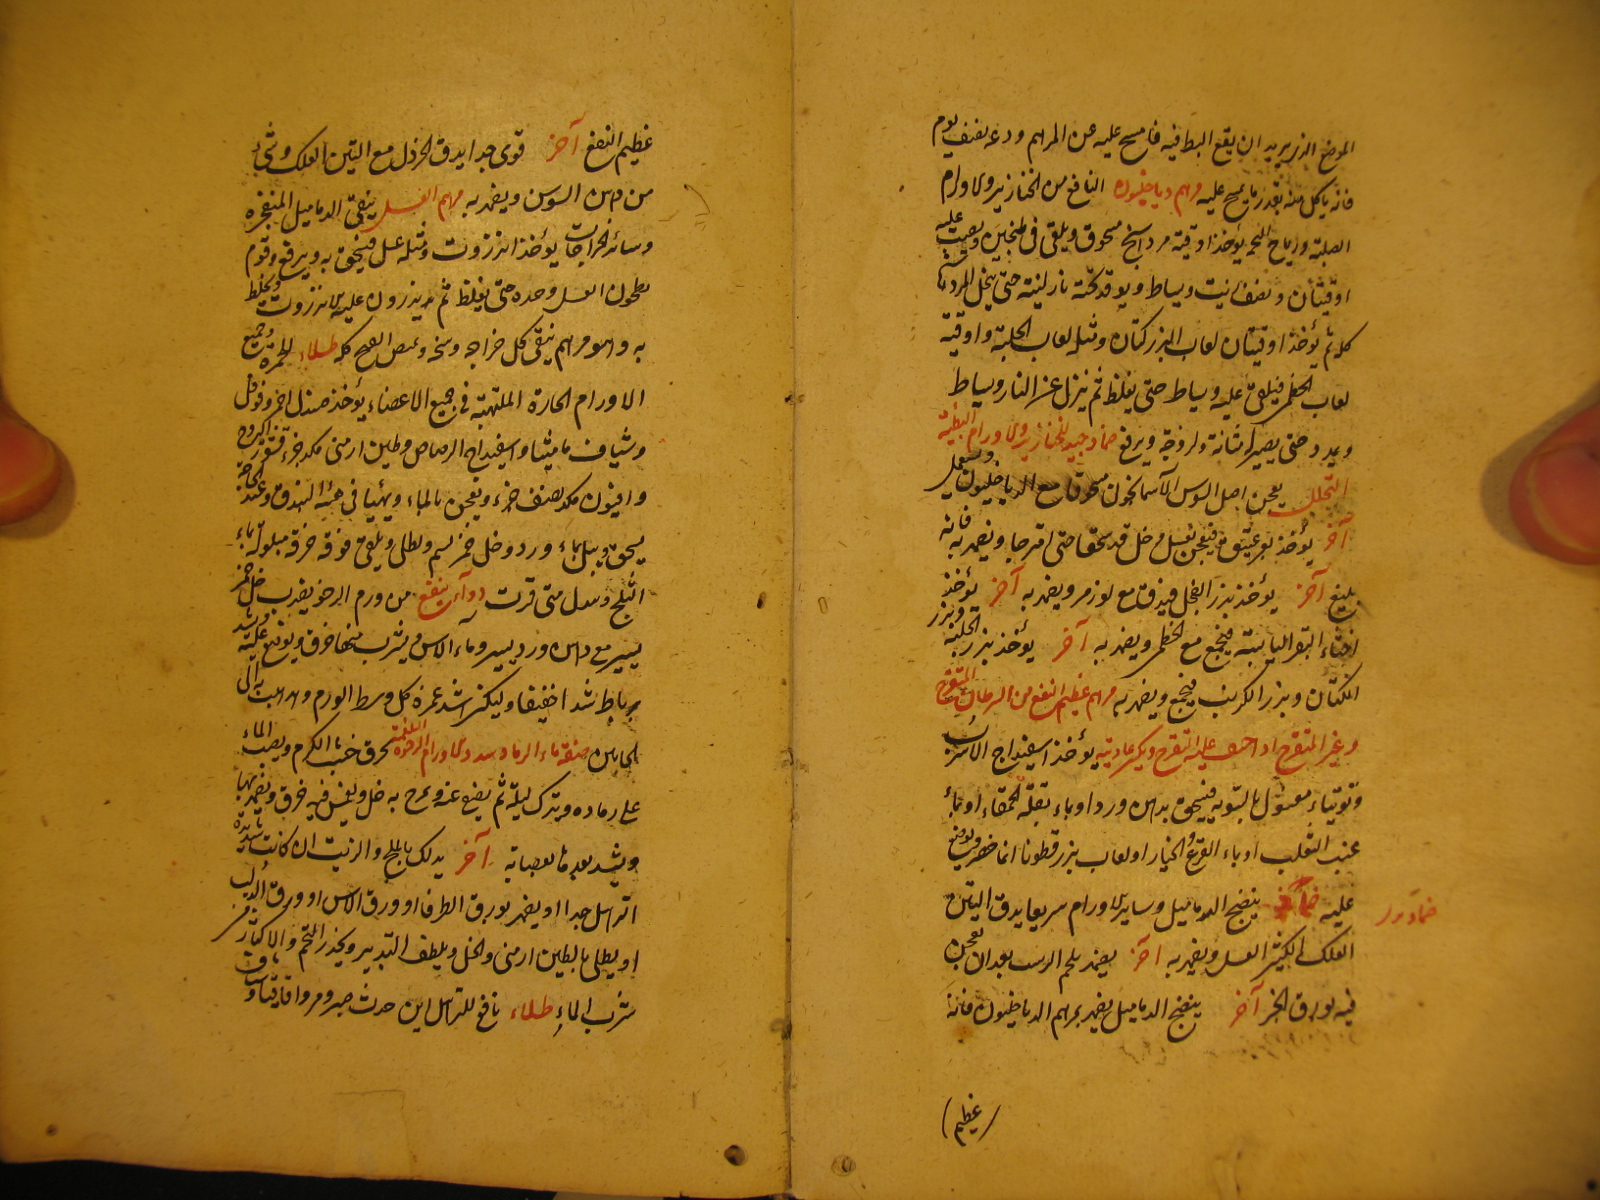 الموضع الذى يريد ان يقع البط فيه فامسح عليه من المرهم ودعه نصف يوم
فانه ياكل منه بقدر ما يمسح عليه مرهم دياخليون النافع من الخنازير والاورام
الصلبة ورياح يؤخذ اوقية مرداسنج مسحوق ويلقى فى طنجير ويصب عليه
اوقيتان ونصف زيت ويساط ويوقد تحته نار لينة حتى ينحل المرداسنج
كله ثم يؤخذ اوقيتان لعاب البزر كتان ومثله لعاب الحلبة واوقية
لعاب الخطمى فيلقى عليه ويساط حتى يغلظ ثم ينزل عن النار ويساط
ويبرد حتى يصير له متانة ولزوجة ويرفع ضماد جيد للخنازير والاورام البطيئة
التحلل يعجن اصل السوس الاسمانجونى مدقوقا مع الدياخليون ويستعمل
آخر يؤخذ بعر عتيق فيعجن بعسل وخل قد سحقا حتى امتزجا ويضمد به فانه
بليغ آخر يؤخذ بزر الفجل فيدق مع لوز مر ويضمد به آخر يؤخذ
اخثاء البقر اليابسة فيجمع مع الخطمى ويضمد به آخر يؤخذ بزر الحلبة وبزر
الكتان وبزر الكرنب فيجمع ويضمد به مرهم عظيم النفع من السرطان المتقرح
وغير المتقرح اذا خيف عليه التقرح ويكسر عاديته يؤخذ اسفيداج الاسرب
وتوتياء مغسول بالسوية فيسحق بدهن ورد او بماء بقلة الحمقاء او بماء
عنب الثعلب او بماء القرع والخيار او لعاب بزر قطونا انما حضر ويوضع
عليه ضماد ينضج الدماميل وساير الاورام سريعا يدق التين
ضماد
العلك الكثير العسل ويضمد به آخر يضمد بلحم الزبيب بعد ان يعجن
فيه بورق الخبز آخر ينضج الدماميل يضمد بمرهم الدياخليون فانه
عظيم
عظيم النفع آخر قوى جدا يدق الخردل مع التين العلك وشىء
من دهن السوسن ويضمد به مرهم العسل ينقى الدماميل المنفجرة
وسائر الخراجات يؤخذ انزروت ومثله عسل فيسحق به ويرفع وقوم
يطبخون العسل وحده حتى يغلظ ثم يذرون عليه الانزروت ويخلط
به وهو مرهم ينقى كل خراجة وسخة ويمص القيح كله طلاء للحمرة وجميع
الاورام الحارة الملتهبة فى جميع الاعضاء يؤخذ صندل احمر وفوفل
وشياف ماميثا واسفيداج الرصاص وطين ارمنى مكد جزء قشور
وافيون مكد نصف جزء ويعجن بالماء ويهيأ فى هيئة البندق وعند الحاجة
يسحق ويبل بماء ورد وخل خمر ويطلى ويلقى فوقه خرقة مبلولة بماء
الثلج وتبدل متى فترت دواء ينفع من ورم الرخو يضرب خل خمر
يسير مع دهن ورد يسير وماء الاس ويشرب منها خرق ويوضع عليه ويشد
برباط شدا خفيفا وليكن اشد غمزه كل وسط الورم ويذهب به الى
الجانبين صفة ماء الرماد للاورام الرخوة البلغمية يحرق خشب الكرم ويصب الماء
على رماده ويترك ليلة ثم يصفى عنه ويمزج به خل ويغمس فيه خرق ويضمد بها
ويشد بعد بالعصابة آخر يدلك بالملح والزيت ان كانت شديدة
الترهل جدا او يضمد بورق الطرفا او ورق الاس او ورق الدلب
او يطلى بالطين ارمنى والخل ويلطف التدبير ويحذر التخم والاكثار من
شرب الماء طلاء نافع للترهل اين حدث صبر ومر واقاقيا